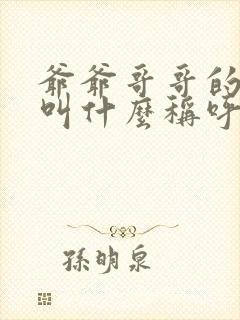 爺爺哥哥的
叫什麼稱呼
孫明泉